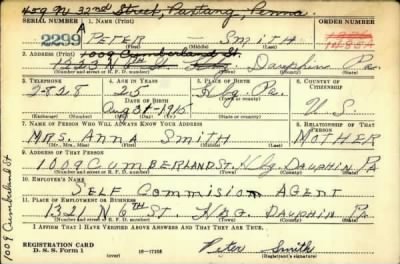 409 N 32nd Street, Paxtang, Penna
SERIAL NUMBER 1. NAME (Print) ORDER NUMBER
2299 PETER SMITH
(First) (Middle) (Last)
2. ADDRESS (Print) 1009 Cumberland St.
DAUPHIN PA.
(Number and street or R. F. D. number) (Town) (County) (State)
3. TELEPHONE 4. AGE IN YEARS 5. PLACE OF BIRTH 6. COUNTRY OF CITIZENSHIP
2-8828 25 Hbg. Pa. U S
DATE OF BIRTH
Aug 31 1915
7. NAME OF PERSON WHO WILL ALWAYS KNOW YOUR ADDRESS 8. RELATIONSHIP OF THAT PERSON
MRS. ANNA SMITH MOTHER
(Mr., Mrs., Miss) (First) (Middle) (Last)
9. ADDRESS OF THAT PERSON
1009 CUMBERLAND ST. Hbg. DAUPHIN PA
(Number and street or R. F. D. number) (Town) (County) (State)
10. EMPLOYER'S NAME
SELF COMMISION AGENT
11. PLACE OF EMPLOYMENT OR BUSINESS
1321 N 6TH ST. HBG. DAUPHIN PA.
(Number and street or R. F. D. number) (Town) (County) (State)
I AFFIRM THAT I HAVE VERIFIED ABOVE ANSWERS AND THAT THEY ARE TRUE.
REGISTRATION CARD
D. S. S. Form 1 (over) 16-17105
Peter Smith
(Registrant's signature)
1009 Cumberland St